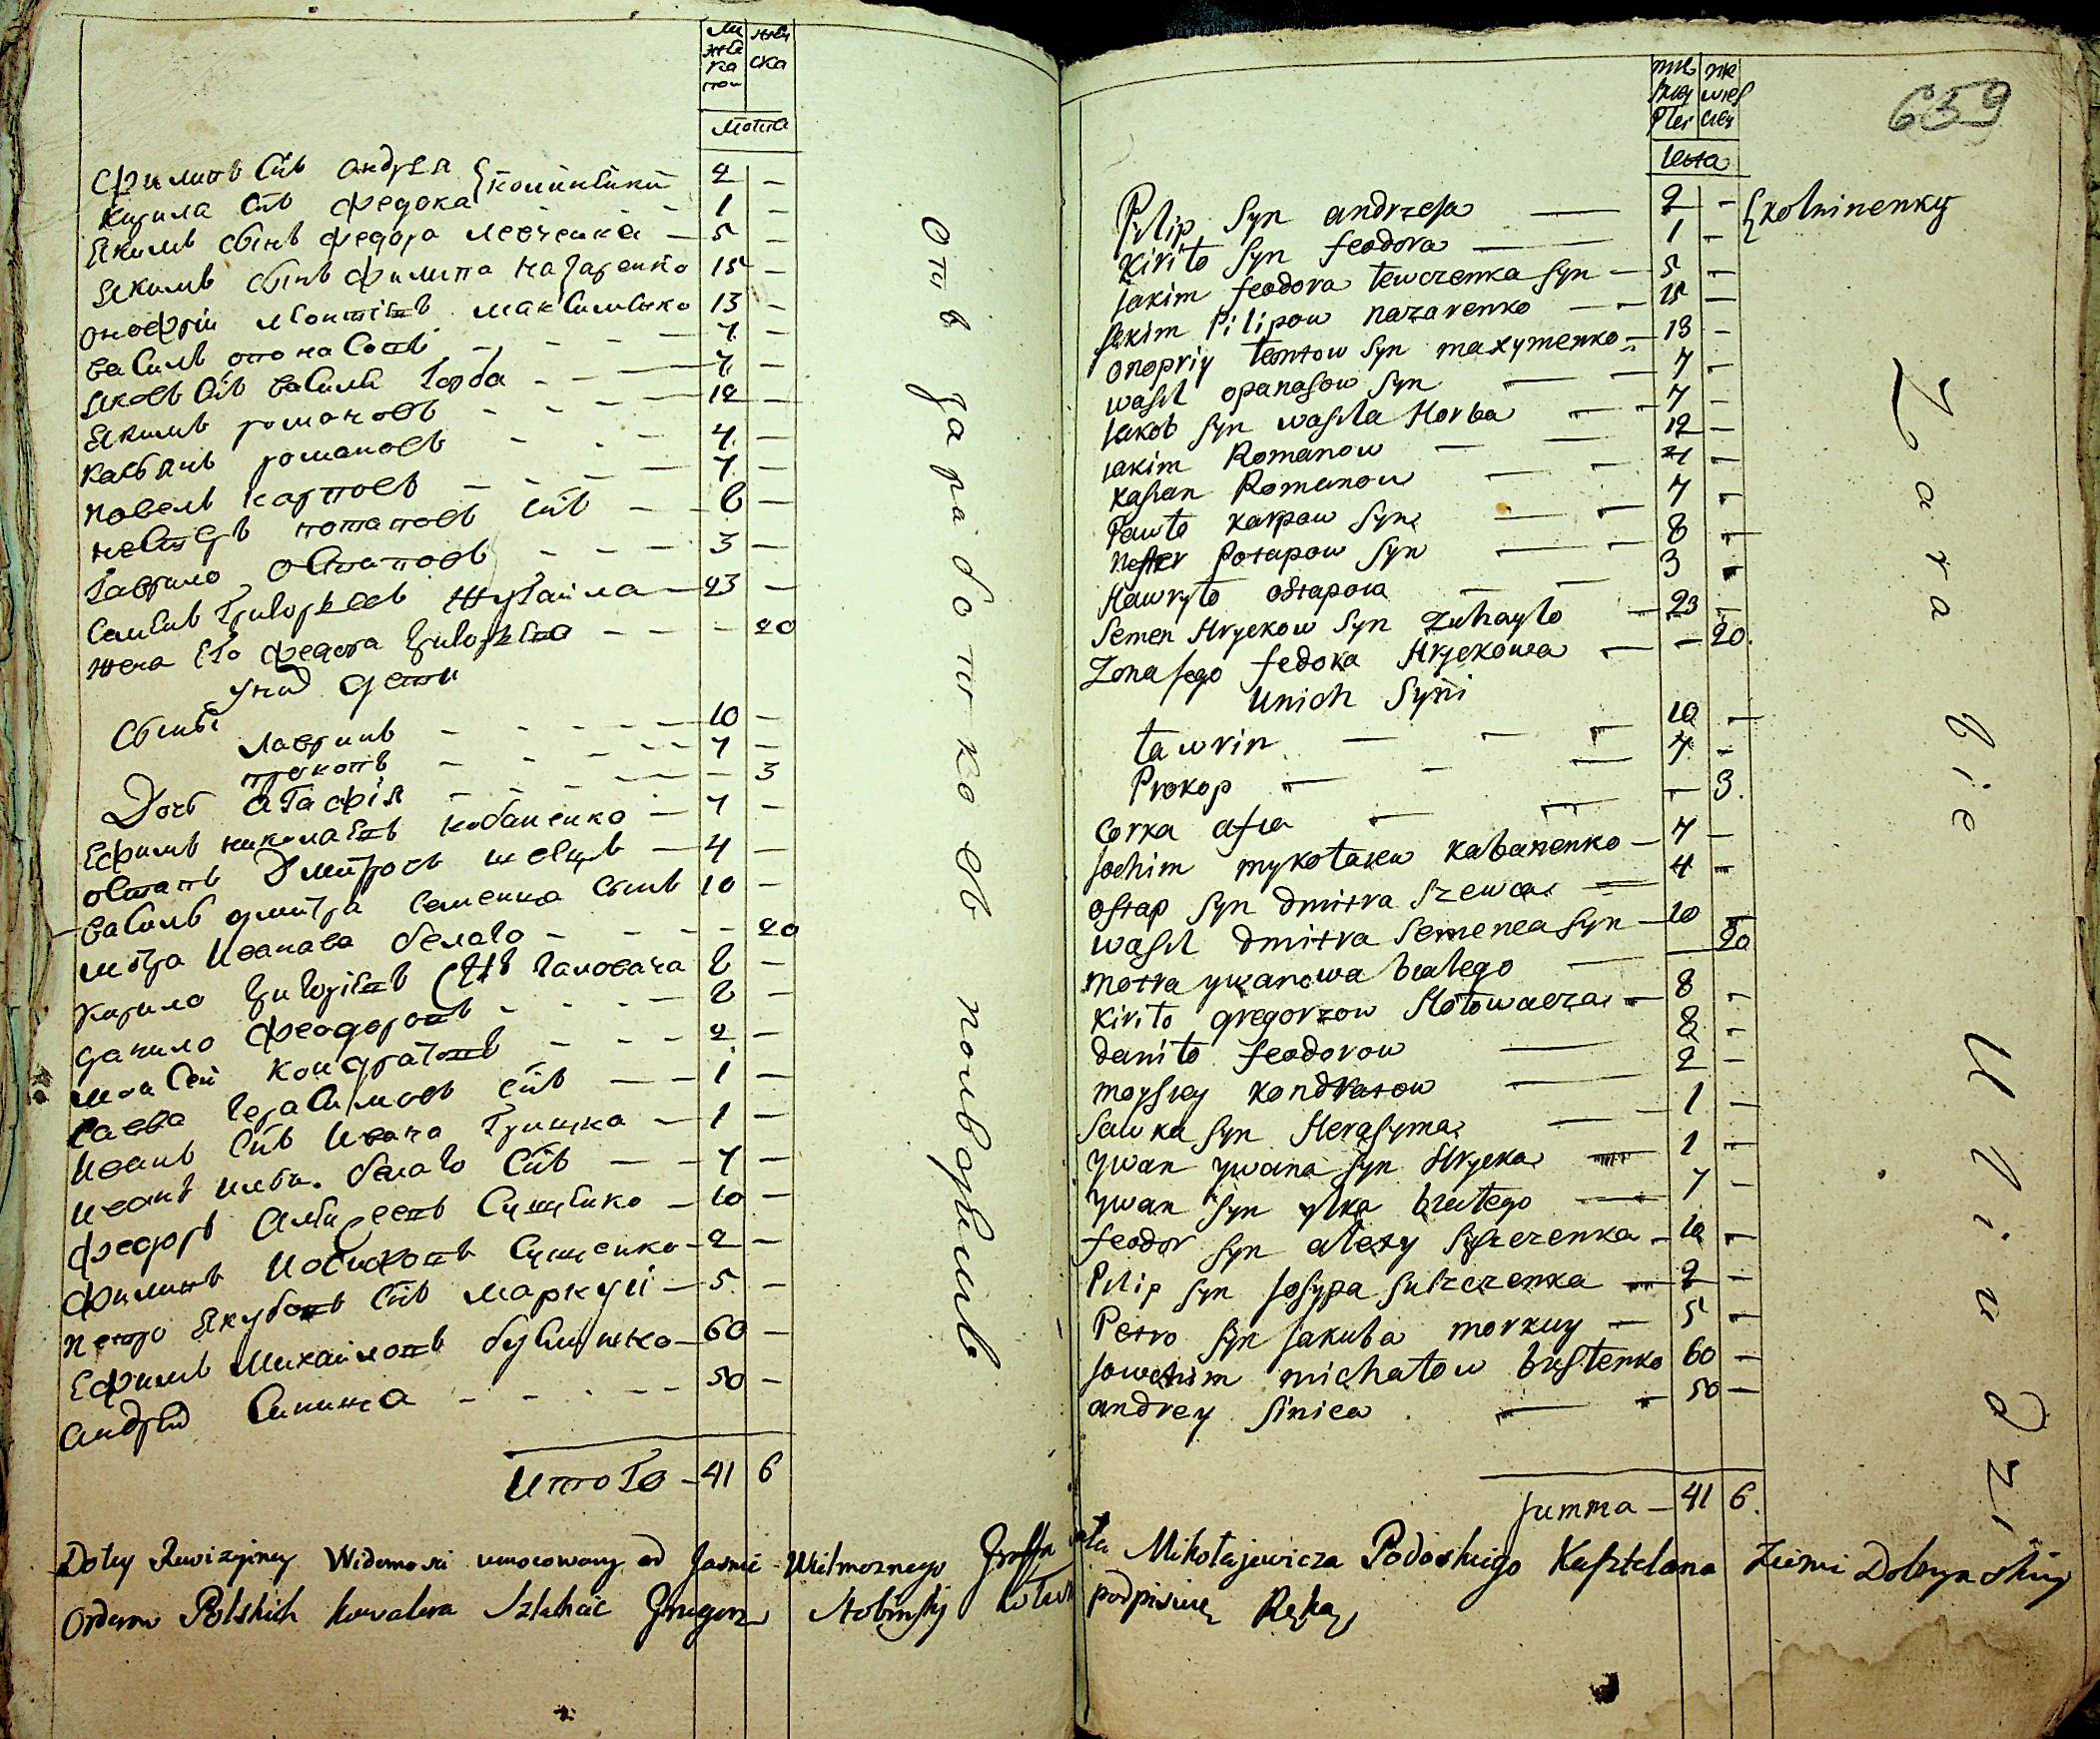 му
жес
ка
пол
жен
ска
лета
Филипъ Сынъ андрея
Кирила Сынъ Федора
колинѣнки
2 –
1 –
Якимъ Сынъ Федора левченка – 5 –
Якимъ Сынъ Филипа назаренко 15 –
онофрій леонтіевъ максименко 13 –
василь опонасовъ – 7 –
яковъ Сынъ василя Горба – 7 –
Якимъ романовъ – 12 –
касьянъ романовъ – 4 –
павелъ карповъ – 7 –
нестеръ потаповъ Сынъ – 8 –
Гаврило остаповъ – 3 –
Семенъ Григорьевъ жугайла – 23 –
жена Его Федора Григорьева – 20
у них дети
Сыны
лавринъ – 10 –
прокопъ – 7 –
Дочь агафія – 3
Ефимъ николаевъ кабаненко – 7 –
остапъ Дмитровъ шевцъ – 4 –
василь дмитра Семенца Сынъ 10 –
мотра Иванава белаго – 20
кирило григоріевъ Сынъ головача 8 –
данило Феодоровъ – 8 –
мойсей кондратовъ – 2 –
Савва герасимовъ Сынъ – 1 –
Иванъ Сынъ Ивана Гришка – 1 –
Иванъ белаго Сынъ – 7 –
Федоръ Сущенко – 10 –
Филипъ Иосиповъ Сущенко – 2 –
петро Якубовъ Сынъ маркуй – 5 –
Ефимъ Михайловъ – 60 –
андрей Синица – 50 –
итого – 41 6
отъ заработковъ
mez
skiey
Plci
nie
wies
ciey
leta
659
Pilip Syn andrzeja – 2 –
Kiriło Syn feodora – 1 –
kolninenky
Jakim feodora lewczenka Syn – 5 –
Jakim Pilipow nazarenko – 15 –
onopriy leontow Syn maxymenko – 13 –
wasil opanasow Syn – 7 –
Jakob Syn wasila Horba – 7 –
iakim Romanow – 12 –
kasian Romanow – 4 –
Pawło karpow Syn – 7 –
nester Potapow Syn – 8 –
Hawryło ostapow – 3 –
Semen Hryckow Syn Zuhayło – 23 –
Zona jego fedora Hryckowa – 20.
Unich Syni
ławrin – 10 –
Prokop – 7 –
corka afia – 3.
Jochim mykołaiew kabanenko – 7 –
ostap Syn dmitra Szewca – 4 –
wasil dmitra Semenca Syn – 10 –
motra ywanowa białego – 20
Kiriło gregorzow Hołowacza – 8 –
daniło feodorow – 8 –
moysiey kondratow – 2 –
Sawka Syn Herasyma – 1 –
ywan ywana Syn Hrycka – 1 –
ywan Syn ylka białego – 7 –
feodor Syn alexy Suszczenka – 10 –
Pilip Syn Josypa Suszczenka – 2 –
Petro Syn Jakuba morkuy – 5 –
Jowchim michałow busłenko 60 –
andrey Sinica – 50 –
Summa – 41 6.
Zarabie
Do tey Rewizyiney Widomości umocowany od Jasnie Wielmoznego Graffa Mikołajewicza Podoskiego Kasztelana Ziemi Dobrzynskiey
Orderow Polskich kawalera Szlachcic Grzegorz podpisuię Ręką